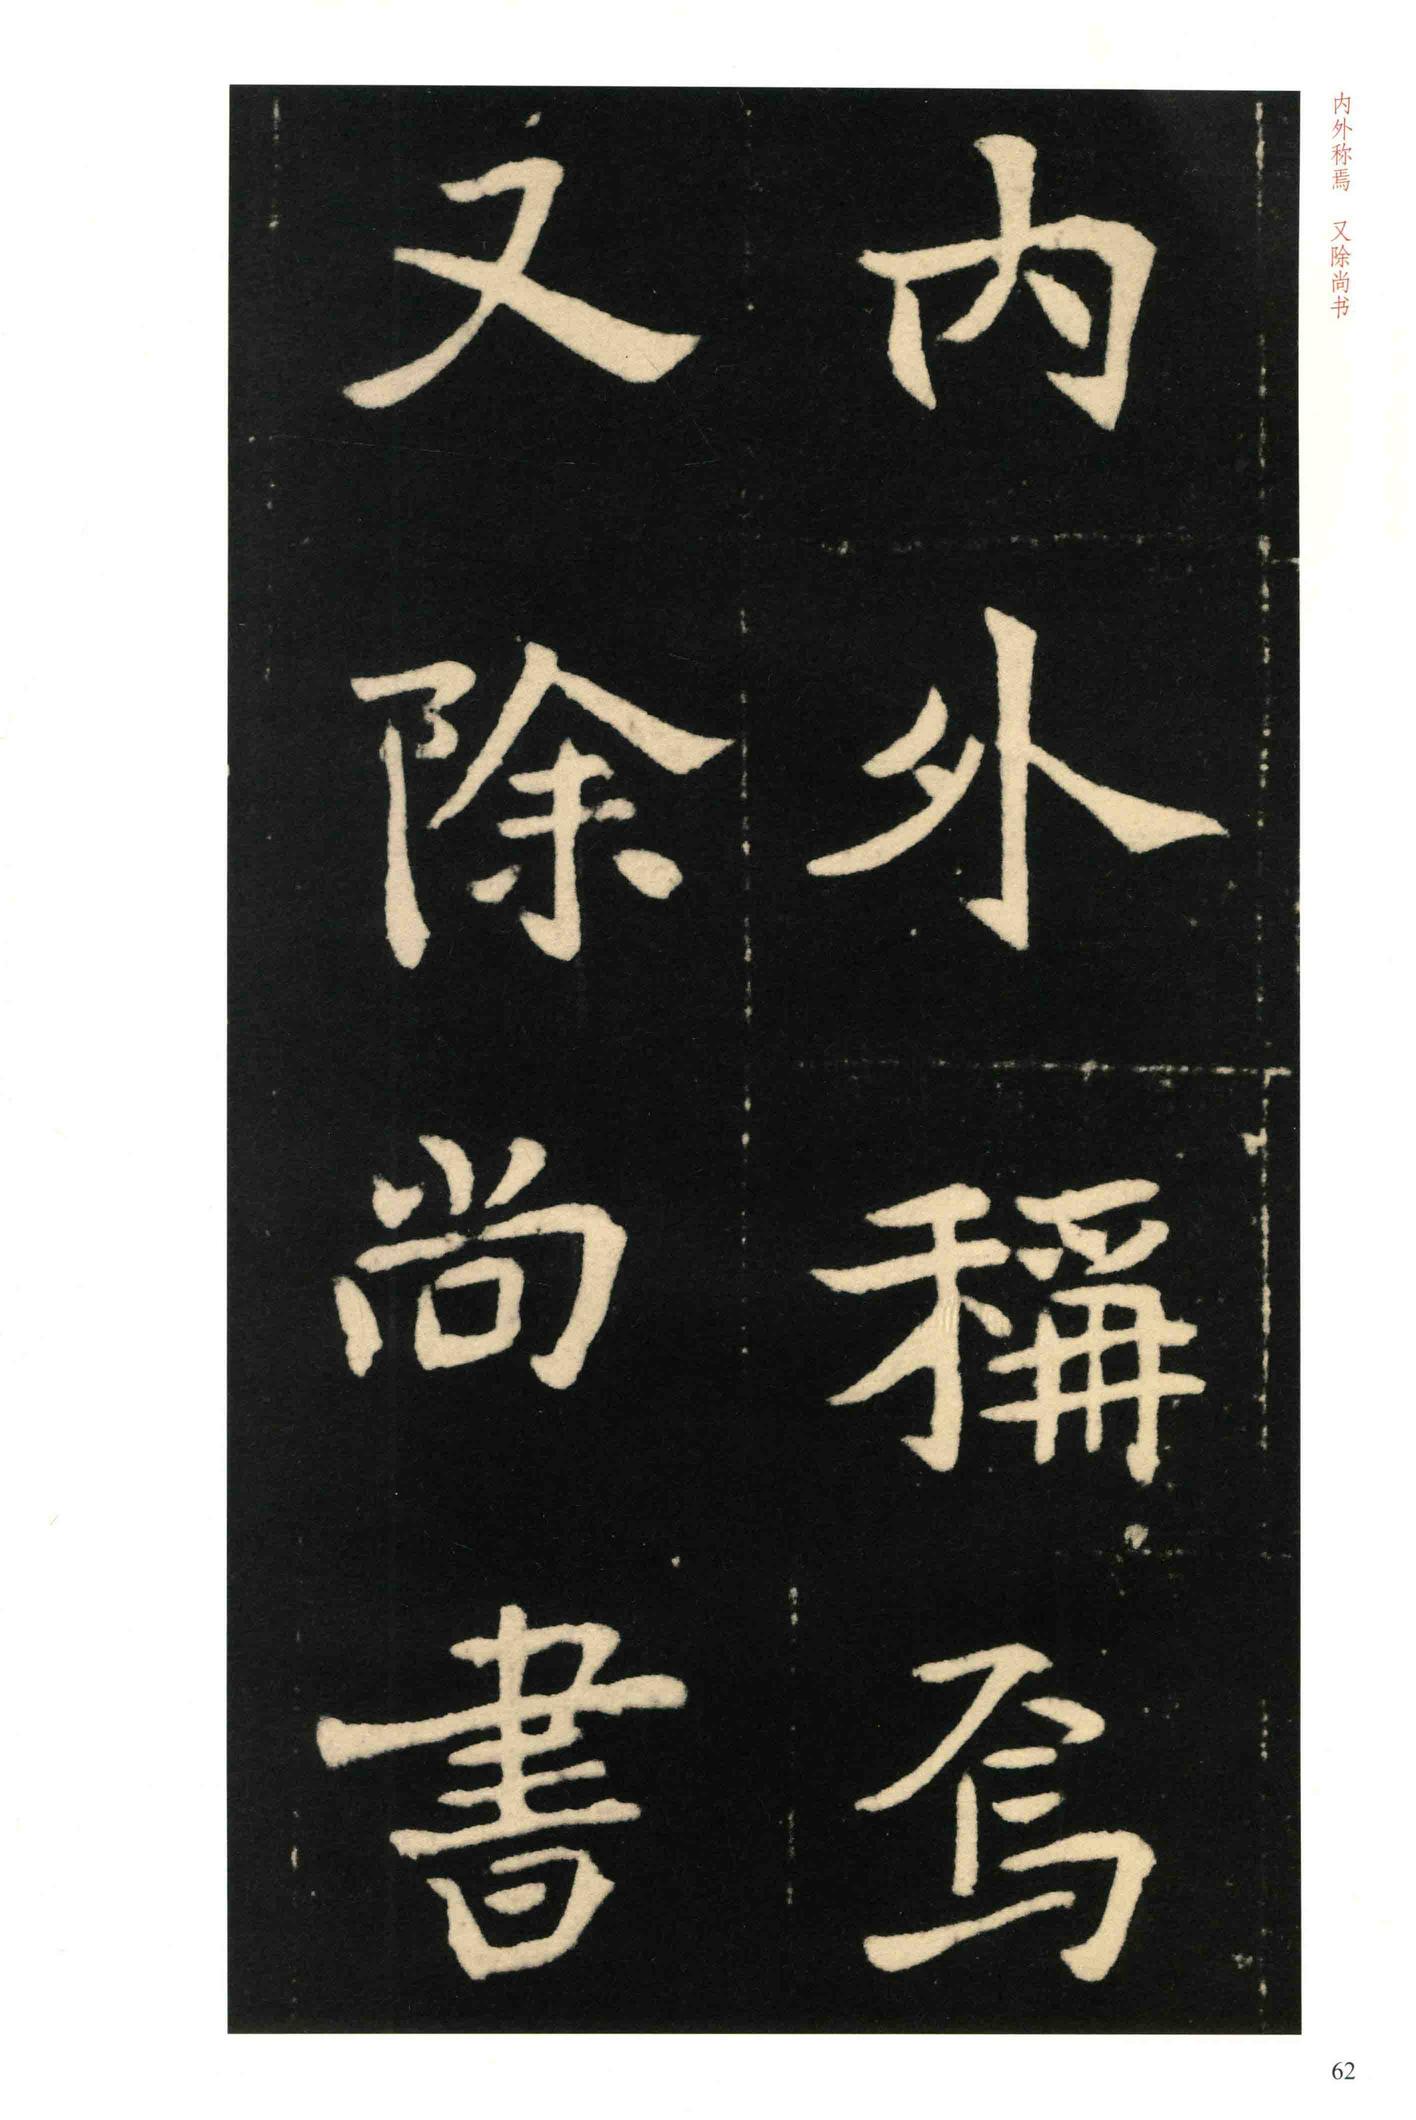 内外稱焉
又除尚書
内外称焉　又除尚书
62